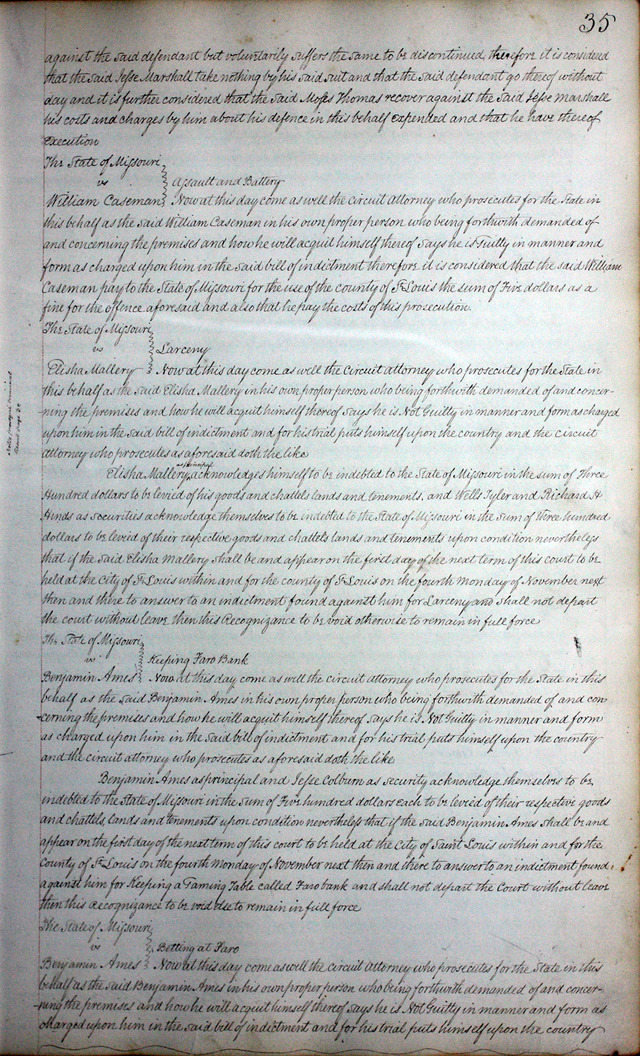 35
against the said defendant but voluntarily suffers the same to be discontinued, therefore it is considered
that the said Jesse Marshall take nothing by his said suit and that the said defendant go thereof without
day and it is further considered that the said Moses Thomas recover against the said Jesse Marshall
his costs and charges by him about his defence in this behalf expended and that he have thereof
execution
The State of Missouri
vs
Assault and Battery
William Caseman Now at this day come as well the circuit Attorney who prosecutes for the State in
this behalf as the said William Caseman in his own proper person who being forthwith demanded of
and concerning the premises and how he will acquit himself thereof Says he is Guilty in manner and
form as charged upon him in the said bill of indictment therefore it is considered that the said William
Caseman pay to the State of Missouri for the use of the county of St Louis the sum of Five dollars as a
fine for the offence aforesaid and also that he pay the costs of this prosecution.
The State of Missouri
vs
Larceny
Elisha Mallery Now at this day come as well the Circuit attorney who prosecutes for the State in
this behalf as the Said Elisha Mallery in his own proper person who being forthwith demanded of and concer-
-ning the premises and how he will acquit himself thereof Says he is Not Guilty in manner and form as charged
upon him in the said bill of indictment and for his trial puts himself upon the country and the circuit
attorney who prosecutes as aforesaid doth the like
Elisha Mallery as principal acknowledges himself to be indebted to the State of Missouri in the sum of Three
Hundred dollars to be levied of his goods and chattels lands and tenements, and Wells Tyler and Richard H
Hinds as securities acknowledge themselves to be indebted to the State of Missouri in the Sum of Three hundred
dollars to be levied of their respective goods and chattels lands and tenements upon condition nevertheless
that if the said Elisha Mallery shall be and appear on the first day of the next term of this court to be
held at the City of St Louis within and for the county of St Louis on the fourth Monday of November next
then and there to answer to an indictment found against him for Larceny and Shall not depart
the court without leave then this Recognizance to be void otherwise to remain in full force
The State of Missouri
vs
Keeping Faro Bank
Benjamin Ames Now at this day come as well the circuit attorney who prosecutes for the State in this
behalf as the Said Benjamin Ames in his own proper person who being forthwith demanded of and con
-cerning the premises and how he will acquit himself thereof says he is Not Guilty in manner and form
as charged upon him in the Said bill of indictment and for his trial puts himself upon the country
and the circuit attorney who prosecutes as aforesaid doth the like
Benjamin Ames as principal and Jesse Colburn as security acknowledge themselves to be
indebted to the State of Missouri in the Sum of Five hundred dollars each to be levied of their respective goods
and chattels, lands and tenements upon condition nevertheless that if the said Benjamin Ames Shall be and
appear on the first day of the next term of this court to be held at the City of Saint Louis within and for the
County of St Louis on the fourth Monday of November next then and there to answer to an indictment found
against him for Keeping a Gaming Table called Faro bank and shall not depart the Court without leave
then this Recognizance to be void else to remain in full force
The State of Missouri
vs
Betting at Faro
Benjamin Ames Now at this day come as well the circuit attorney who prosecutes for the State in this
behalf as the said Benjamin Ames in his own proper person who being forthwith demanded of and concer-
-ning the premises and how he will acquit himself thereof says he is Not Guilty in manner and form as
charged upon him in the said bill of indictment and for his trial puts himself upon the country